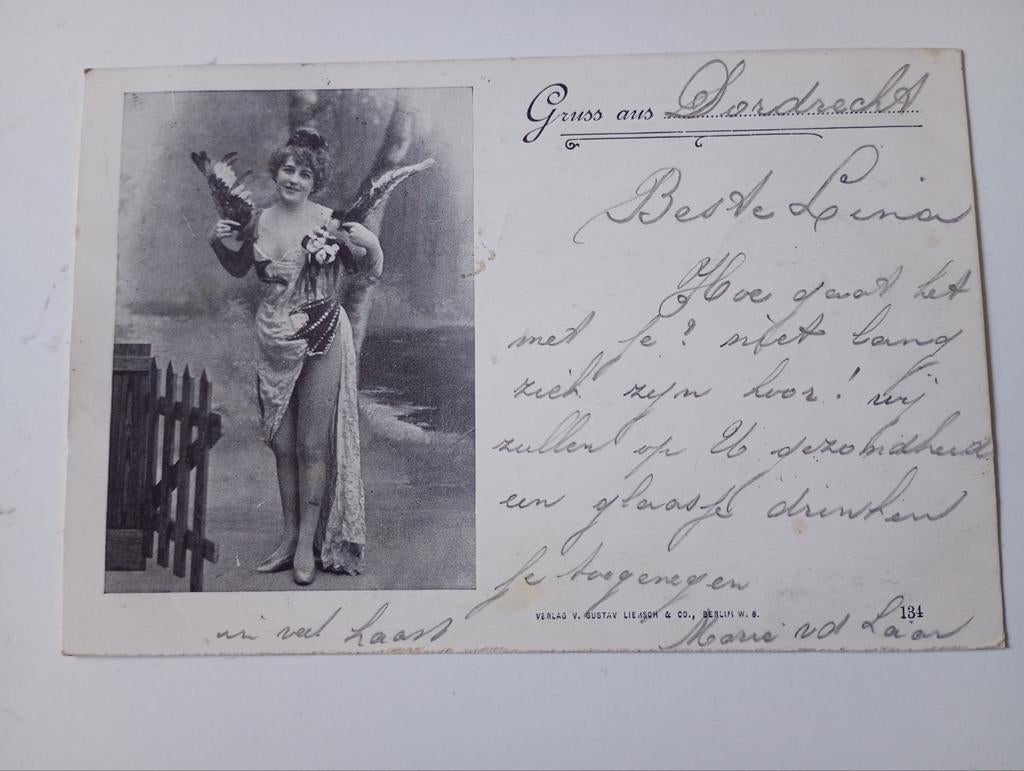 Gruss aus Dordrecht
Beste Lina
Hoe gaat het
met je? niet lang
ziek zijn hoor! wij
zullen op U gezondheid
een glaasje drinken
je toegenegen
VERLAG V. GUSTAV LIERSCH & CO., BERLIN W. 8.
134
Marie vd Laar
in veel haast